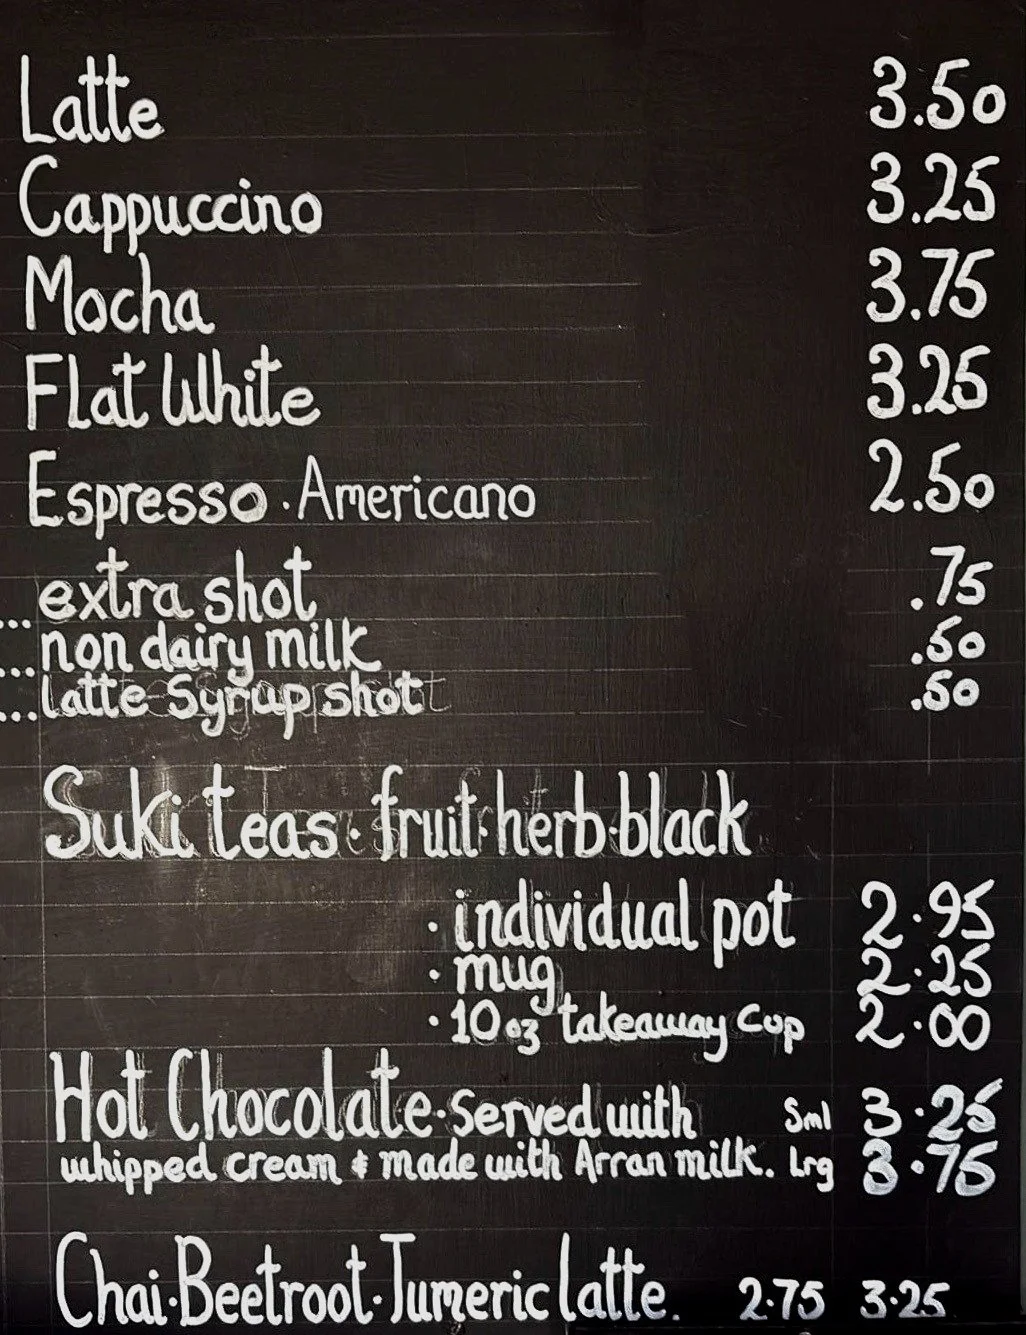 Latte 3.50
Cappuccino 3.25
Mocha 3.75
Flat White 3.25
Espresso · Americano 2.50
...extra shot .75
...non dairy milk .50
...latte Syrup shot .50
Suki teas · fruit · herb · black
· individual pot 2.95
· mug 2.25
· 10oz takeaway Cup 2.00
Hot Chocolate · Served with Sml 3.25
whipped cream & made with Arran milk. Lrg 3.75
Chai · Beetroot · Tumeric latte. 2.75 3.25